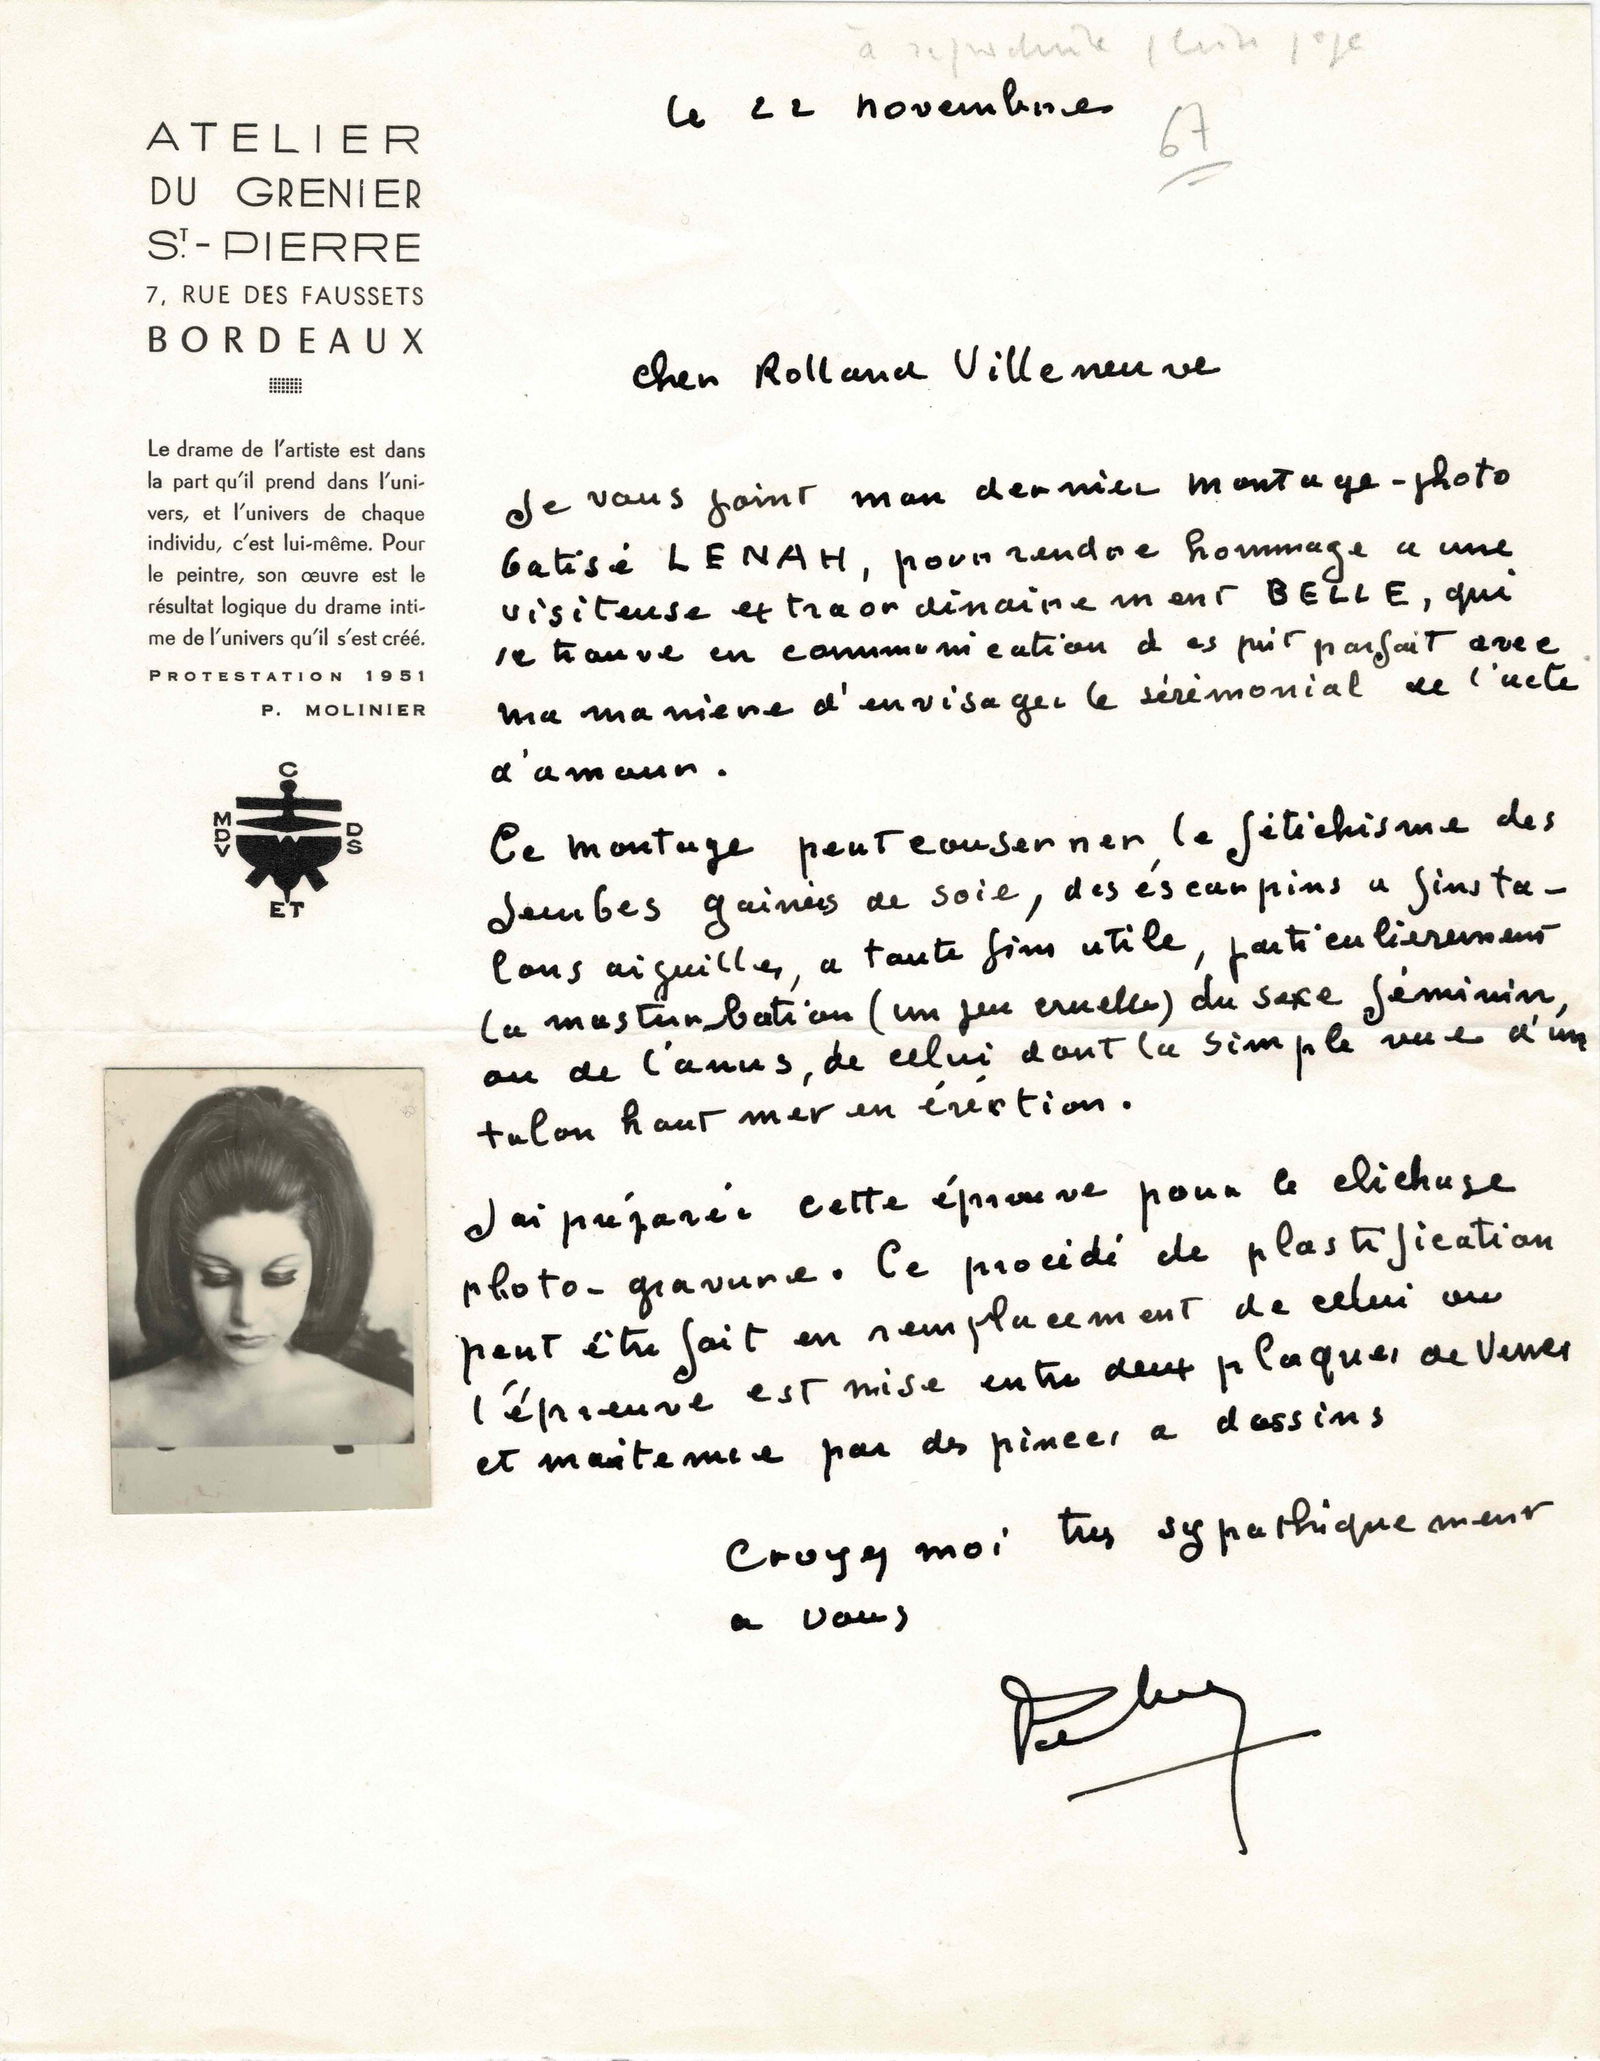 à reproduire pleine page
le 22 novembre
67
ATELIER
DU GRENIER
ST.-PIERRE
7, RUE DES FAUSSETS
BORDEAUX
Le drame de l'artiste est dans
la part qu'il prend dans l'uni-
vers, et l'univers de chaque
individu, c'est lui-même. Pour
le peintre, son œuvre est le
résultat logique du drame inti-
me de l'univers qu'il s'est créé.
PROTESTATION 1951
P. MOLINIER
C
MDV
DS
ET
cher Rolland Villeneuve
Je vous joint mon dernier montage-photo
batisé LENAH, pour rendre hommage a une
visiteuse extraordinairement BELLE, qui
se trouve en communication d esprit parfait avec
ma maniere d'envisager le sérémonial de l'acte
d'amour.
Ce montage peut conserner le fétichisme des
Jembes gainées de soie, des éscarpins a fins ta-
lons aiguilles, a toute fins utile, particulierement
la masturbation (un peu cruelle) du sexe féminin,
ou de l'anus, de celui dont la simple vue d'un
talon haut met en éréction.
J'ai préparée cette épreuve pour le clichage
photo-gravure. Ce procédé de plastification
peut être fait en remplacement de celui ou
l'épreuve est mise entre deux plaques de Verres
et maitenue par des pinces a dessins
Croyez moi tres sypathiquement
a vous